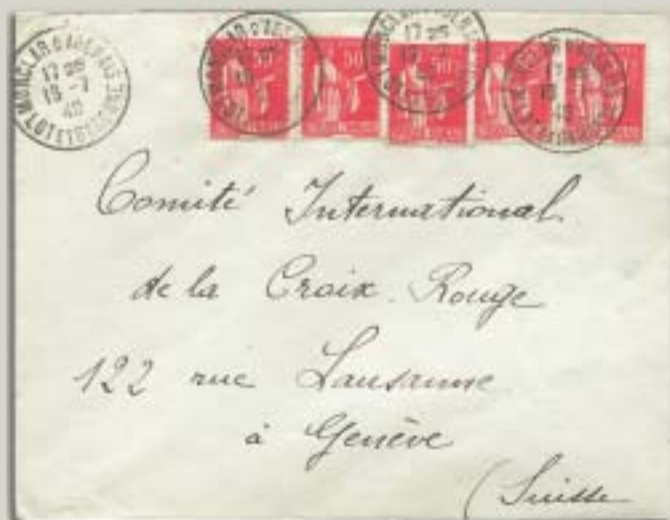 MONCLAR D'AGENAIS
17 25
19 -7
40
LOT ET GARONNE
50
50
50
Comité International
de la Croix. Rouge
122 rue Lausanne
à Genève
(Suisse